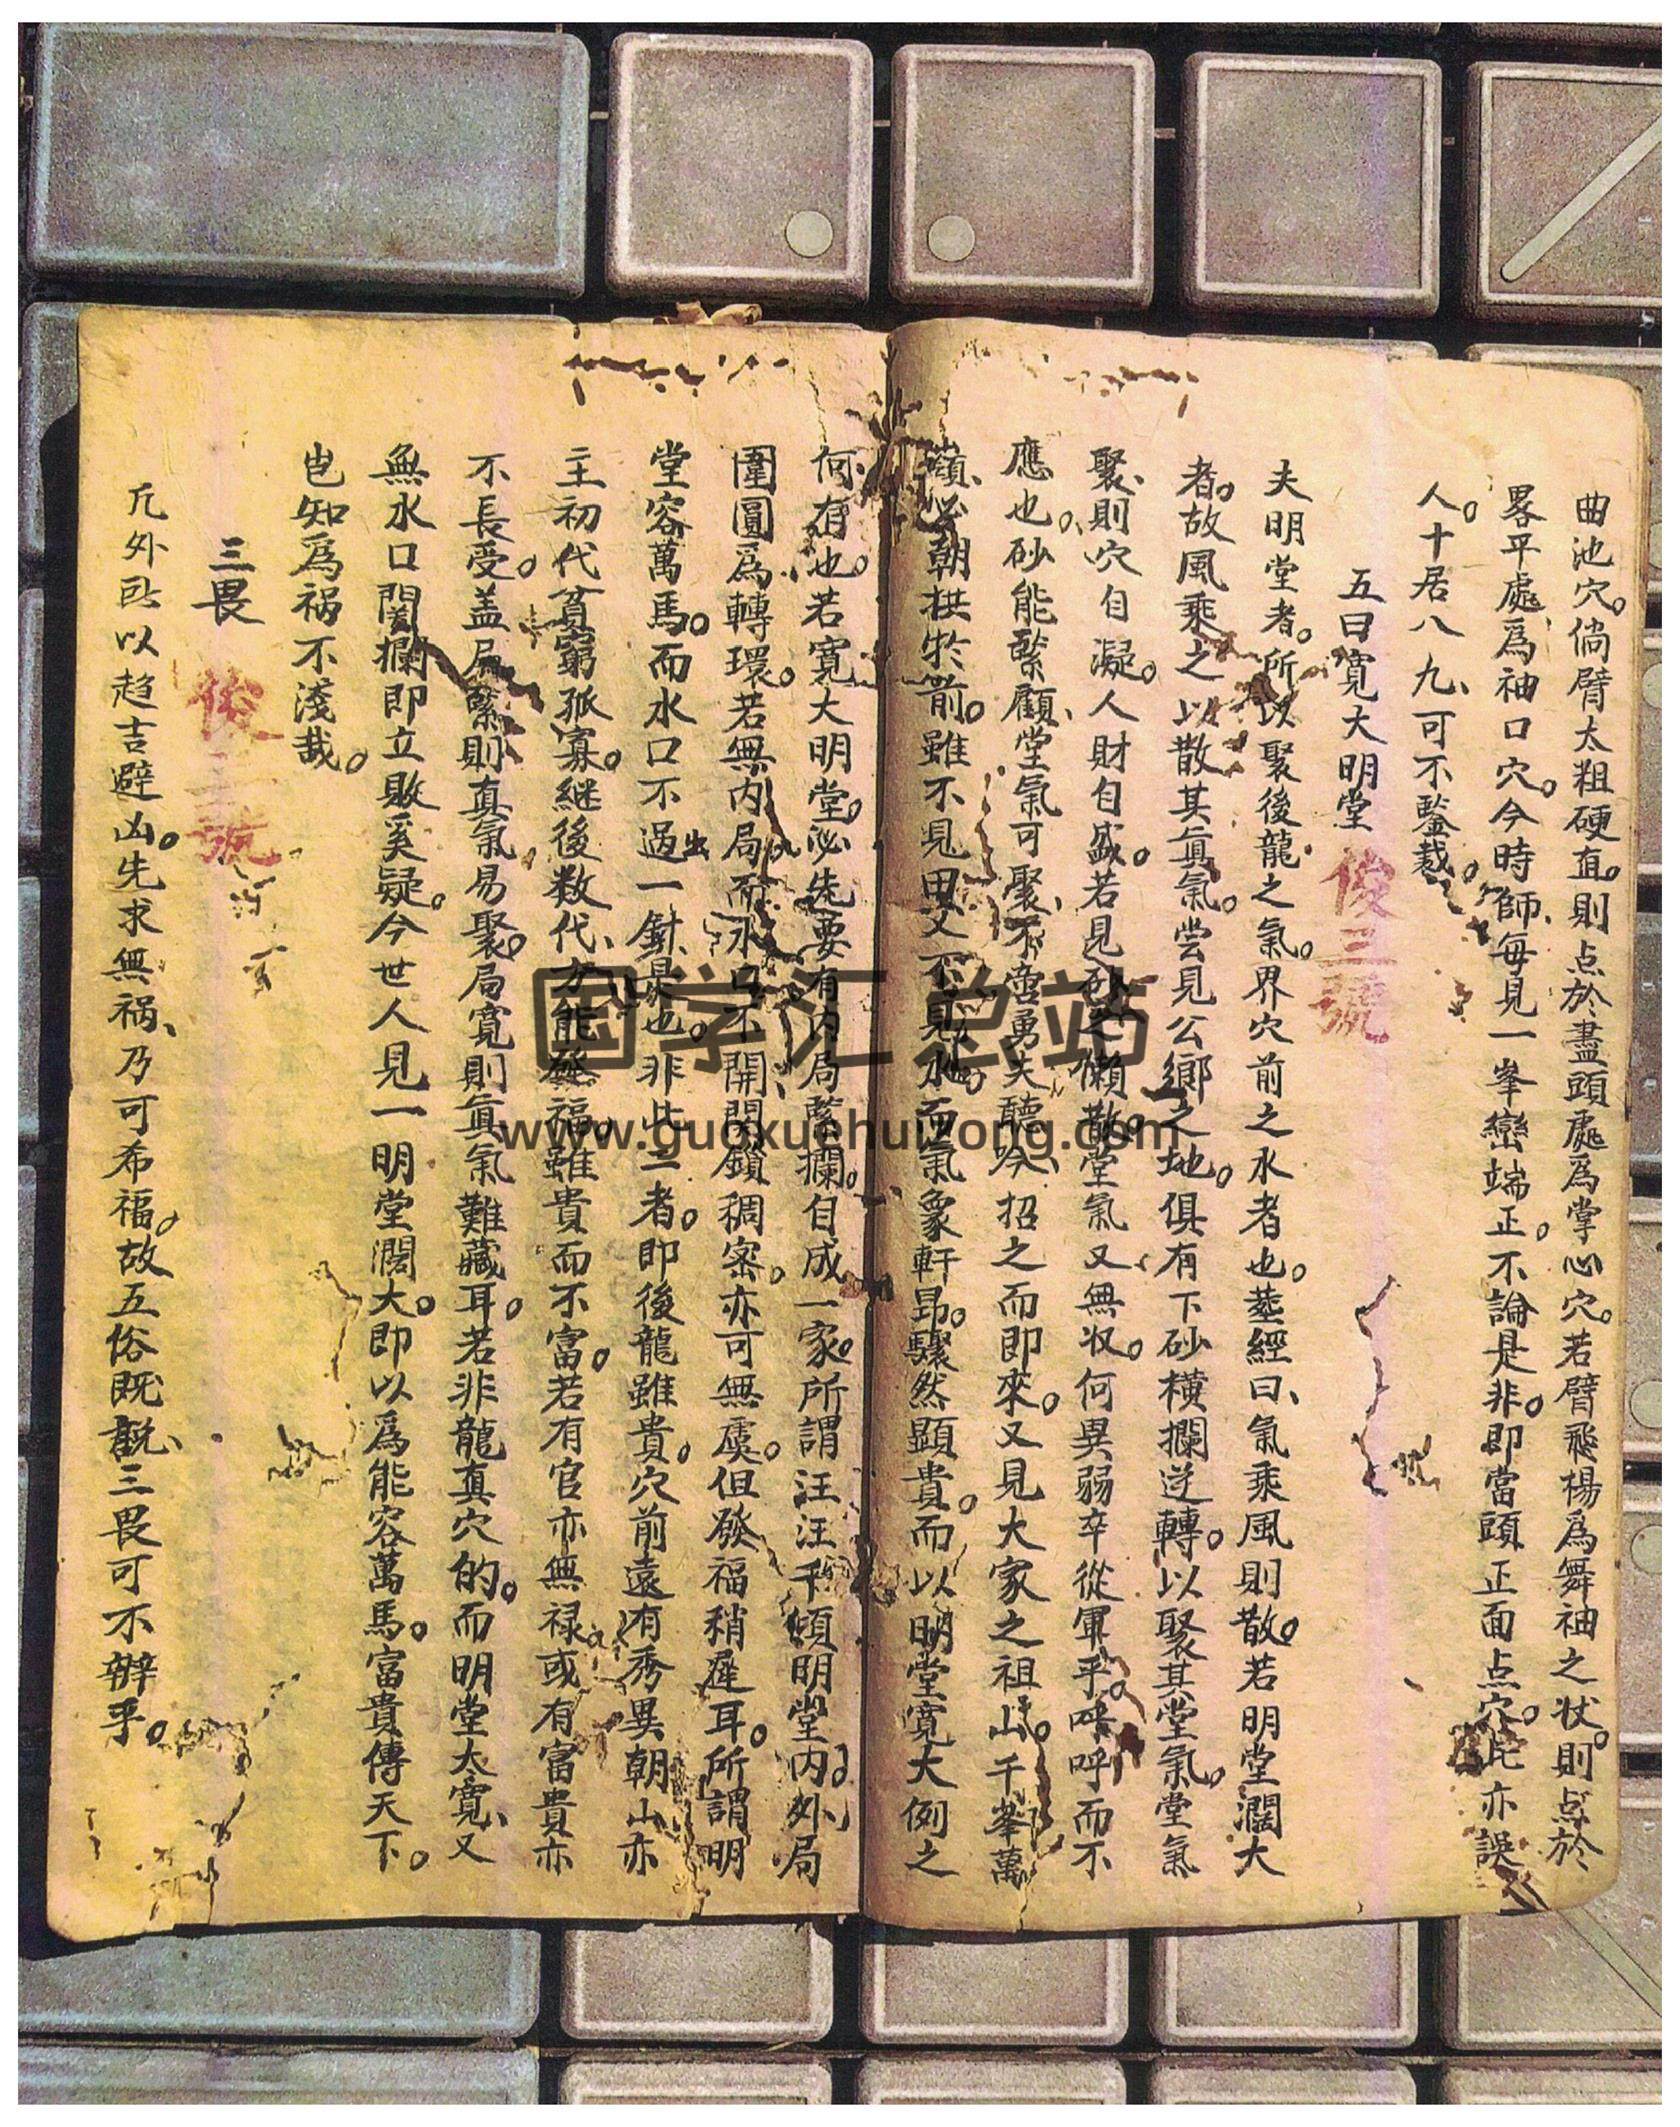 曲池穴。倘臂太粗硬直。則点於盡頭處爲掌心穴。若臂飛楊爲舞袖之状。則点於
畧平處、爲袖口穴。今時師、每見一峯巒端正。不論是非。即當頭正面点穴。此亦誤
人。十居八九、可不鑒哉。
五曰寛大明堂
俊三號
夫明堂者。所以聚後龍之氣。界穴前之水者也。塟經曰、氣乘風則散。若明堂濶大
者。故風乘之以散其真氣。尝見公鄉之地。俱有下砂橫攔逆轉。以聚其堂氣。堂氣
聚、則穴自凝。人財自盛。若見砂之懶散。堂氣又無収。何異弱卒從軍乎。呼而不
應也。砂能緊顧、堂氣可聚、不啻勇夫聽吟、招之而即來。又見大家之祖山。千峯萬
嶺、必朝拱於前。雖不見田又不見水、而氣象軒昂。驟然顯貴。而以明堂寛大例之
何有也。若寛大明堂。必先要有内局緊攔。自成一家。所謂汪汪千頃明堂。内外局
圍圓爲轉環。若無内局、而水口不開、関鎖稠宻。亦可無虞。但發福稍遲耳。所謂明
堂容萬馬。而水口不過一針是也。非此二者。即後龍雖貴。穴前遠有秀異朝山亦
出
主初代貧窮孤寡。継後数代、方能發福。雖貴而不富。若有官亦無禄。或有富貴亦
不長受。盖局緊則真氣易聚。局寛則真氣難藏耳。若非龍真穴的。而明堂太寛、又
無水口関攔即立敗奚疑。今世人見一明堂濶大。即以爲能容萬馬。富貴傳天下。
豈知爲祸不淺哉。
三畏
俊三號
凡外卧以趋吉避凶。先求無祸、乃可希福。故五俗既説、三畏可不辨乎。
国学汇总站
www.guoxuehuizong.com